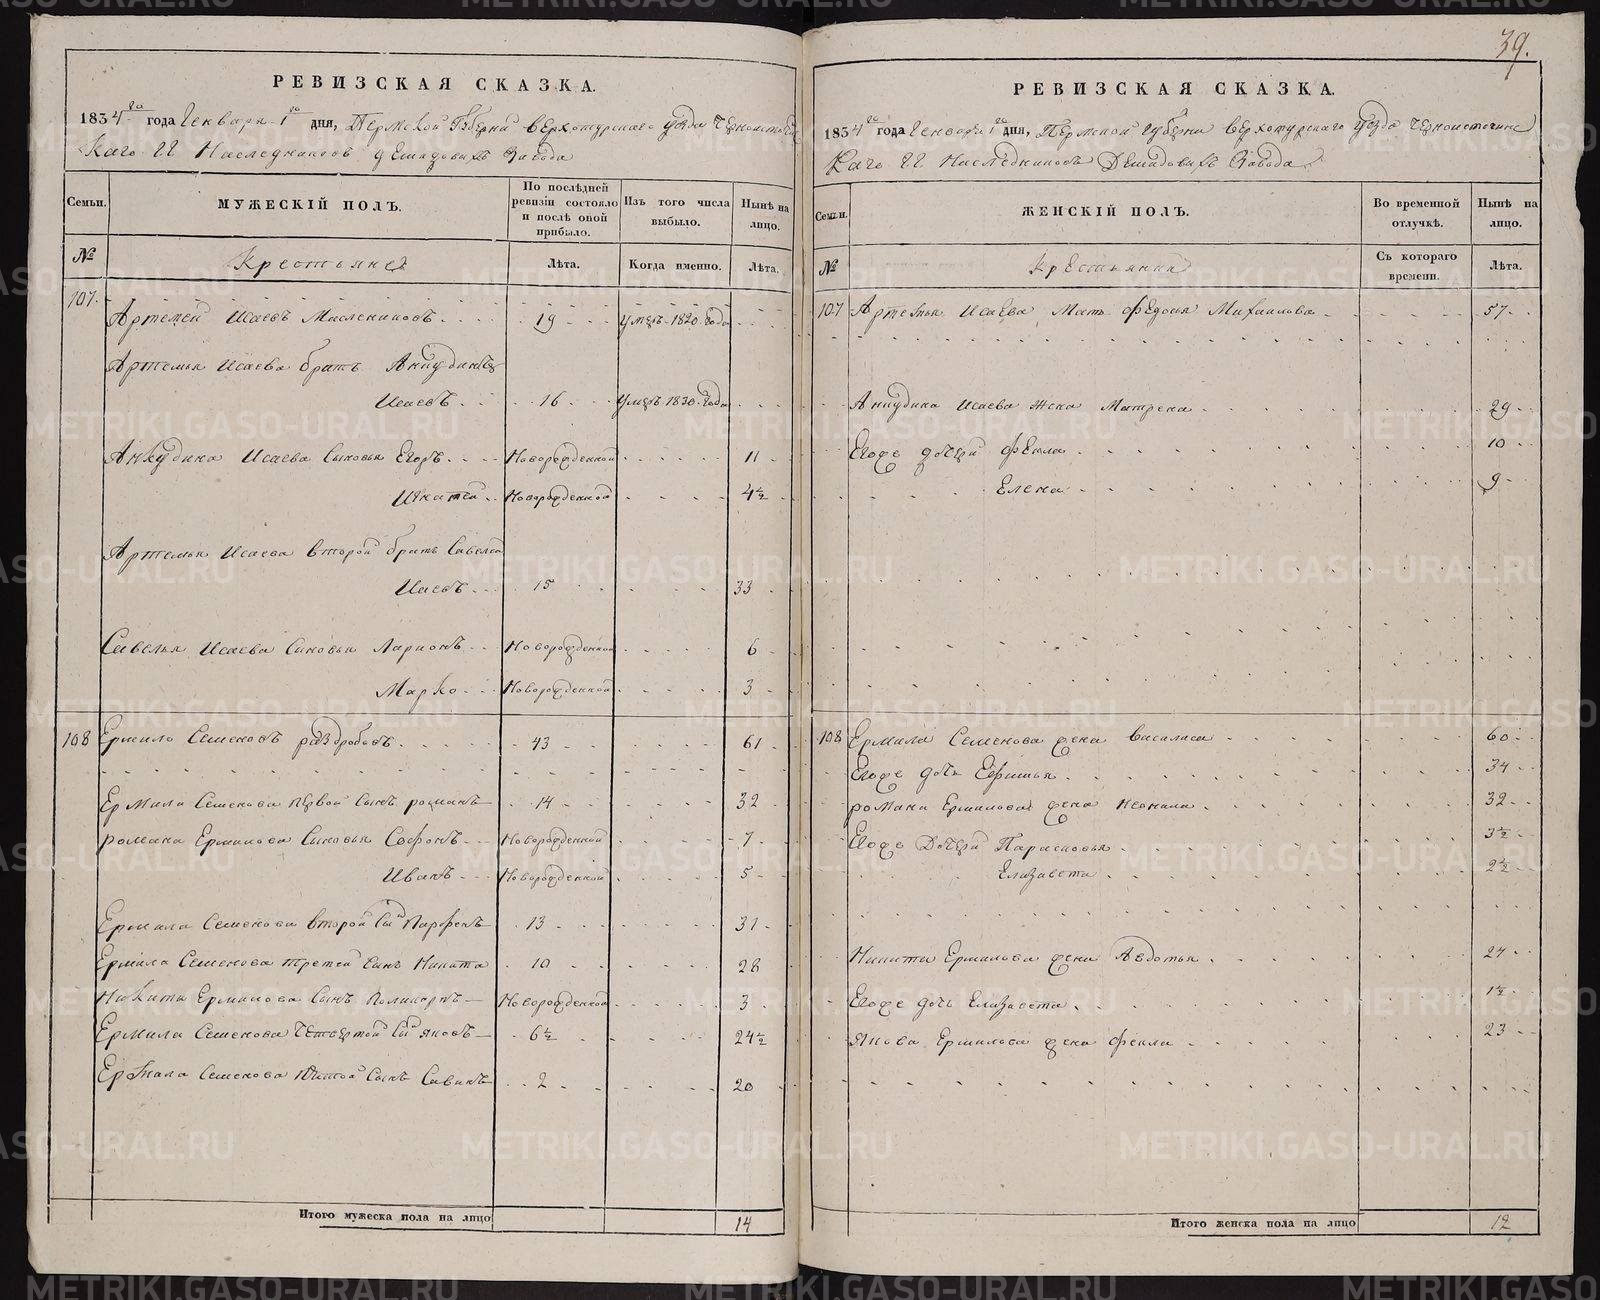 39.
РЕВИЗСКАЯ СКАЗКА.
1834 го года Генваря 1 го дня, Пермской Губернии верхотурского уезда Черноисточин
скаго Г.Г. Наследников Демидовыхъ Завода
Семьи. МУЖЕСКІЙ ПОЛЪ. По послѣдней ревизіи состояло и послѣ оной прибыло. Изъ того числа выбыло. Нынѣ на лицо.
№ Крестьяне Лѣта. Когда именно. Лѣта.
107. Артемей Исаевъ Маслениковъ 19 умеръ 1820 года
Артемья Исаева братъ Анкудинъ
Исаевъ 16 умеръ 1830 года
Анкудина Исаева сыновья Егоръ Новорожденной 11
Игнатей Новорожденной 4½
Артемья Исаева второй братъ Савелей
Исаевъ 15 33
Савелья Исаева сыновья Ларионъ Новорожденной 6
Марко Новорожденной 3
108 Ермило Семеновъ раздробовъ 43 61
Ермила Семенова первой сынъ романъ 14 32
романа Ермилова сыновья Софонъ Новорожденной 7
Иванъ Новорожденной 5
Ермила Семенова второй сынъ Парфенъ 13 31
Ермила Семенова третей сынъ Никита 10 28
Никиты Ермилова сынъ Поликарпъ Новорожденной 3
Ермила Семенова четвертой сынъ яковъ 6½ 24½
Ермила Семенова пятой сынъ Савинъ 2 20
Итого мужеска пола на лицо 14
РЕВИЗСКАЯ СКАЗКА.
1834 го года Генваря 1 го дня, Пермской губернии верхотурского уезда Черноисточин
скаго Г.Г. Наследниковъ Демидовыхъ Завода
Семьи. ЖЕНСКІЙ ПОЛЪ. Во временной отлучкѣ. Нынѣ на лицо.
№ крестьянки Съ котораго времени. Лѣта.
107 Артемья Исаева Мать Федосья Михаилова 57
Анкудина Исаева жена Матрена 29
Егоже дочери Фекла 10
Елена 9
108 Ермила Семенова жена василиса 60
Егоже дочь Ефимья 34
романа Ермилова жена неонила 32
Егоже Дочери Парасковья 3½
Елизавета 2½
Никиты Ермилова жена Авдотья 24
Егоже дочь Елизавета 1½
Якова Ермилова жена фекла 23
Итого женска пола на лицо 12
METRIKI.GASO-URAL.RU